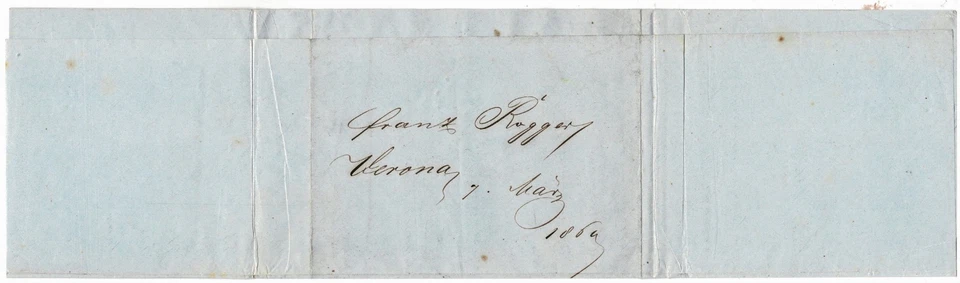 Franz Rögger
Verona
7. März
1860